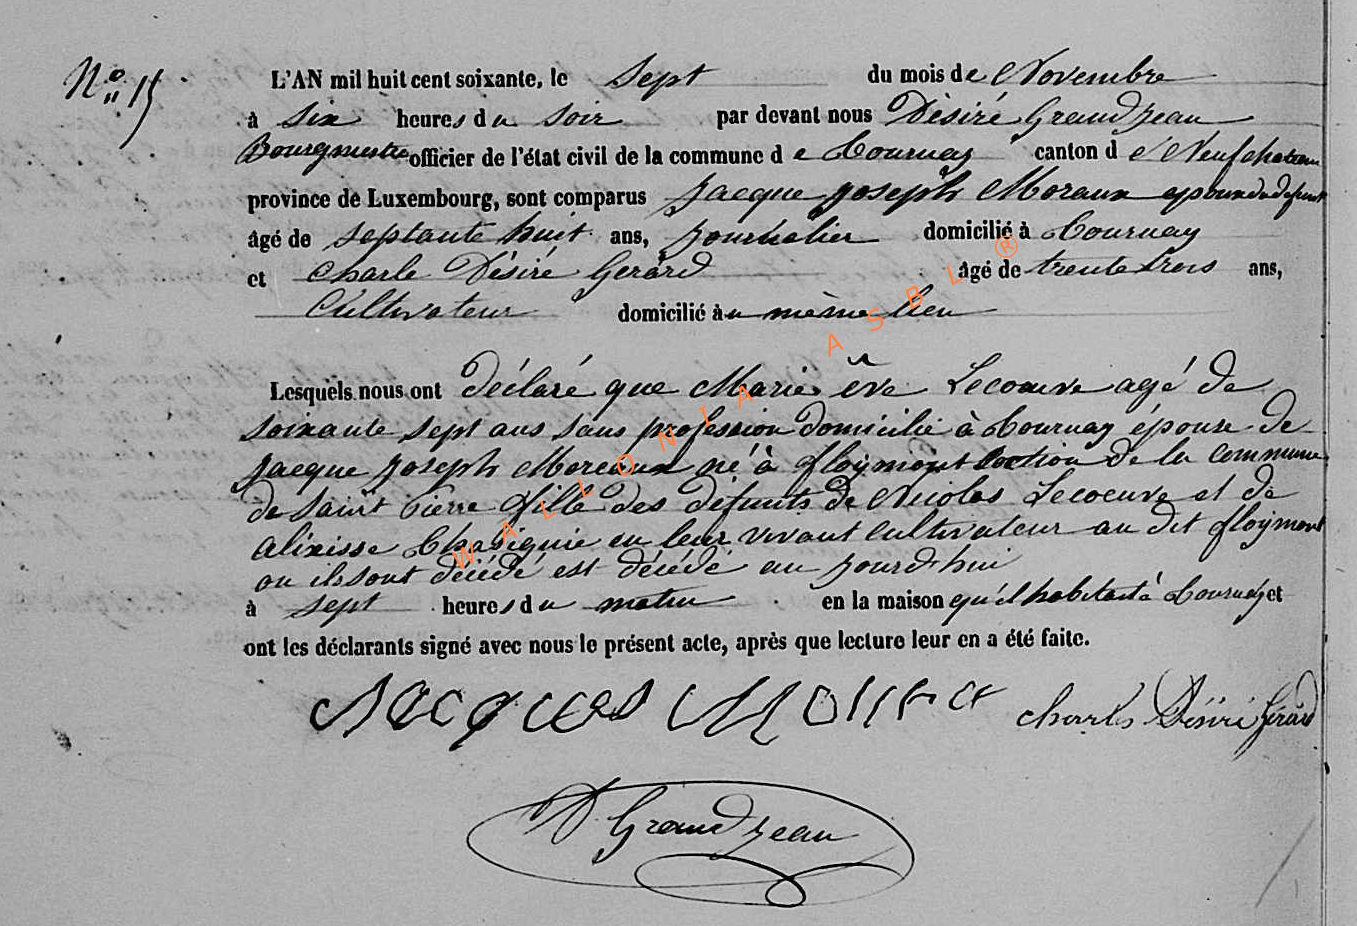 N° 15
L'AN mil huit cent soixante, le sept du mois de Novembre
à six heures du soir par devant nous Désiré Grandjean
Bourgmestre officier de l'état civil de la commune de Tournay canton de Neufchateau
province de Luxembourg, sont comparus Jacque Joseph Moraux epoux de la defunt
âgé de septante huit ans, journalier domicilié à Tournay
et Charle Désiré Gerard âgé de trente trois ans,
Cultivateur domicilié au même lieu
Lesquels nous ont déclaré que Marie êve Lecoeuve agé de
soixante sept ans sans profession domicilié à Tournay épouse de
Jacque Joseph Moreaux né à floymont section de la commune
de Saint Pierre fille des défunts de Nicolas Lecoeuve et de
en leur vivant cultivateur au dit floymont
ou ils sont décédé est décédé au jourd'hui
à sept heures du matin en la maison qu'il habitait à Tournay et
ont les déclarants signé avec nous le présent acte, après que lecture leur en a été faite.
Jacques Charles Désiré Gérard
D Grandjean
WALLONIA ASBL ®